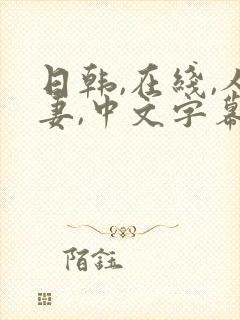 日韩,在綫,人
妻,中文字幕
陌鈺